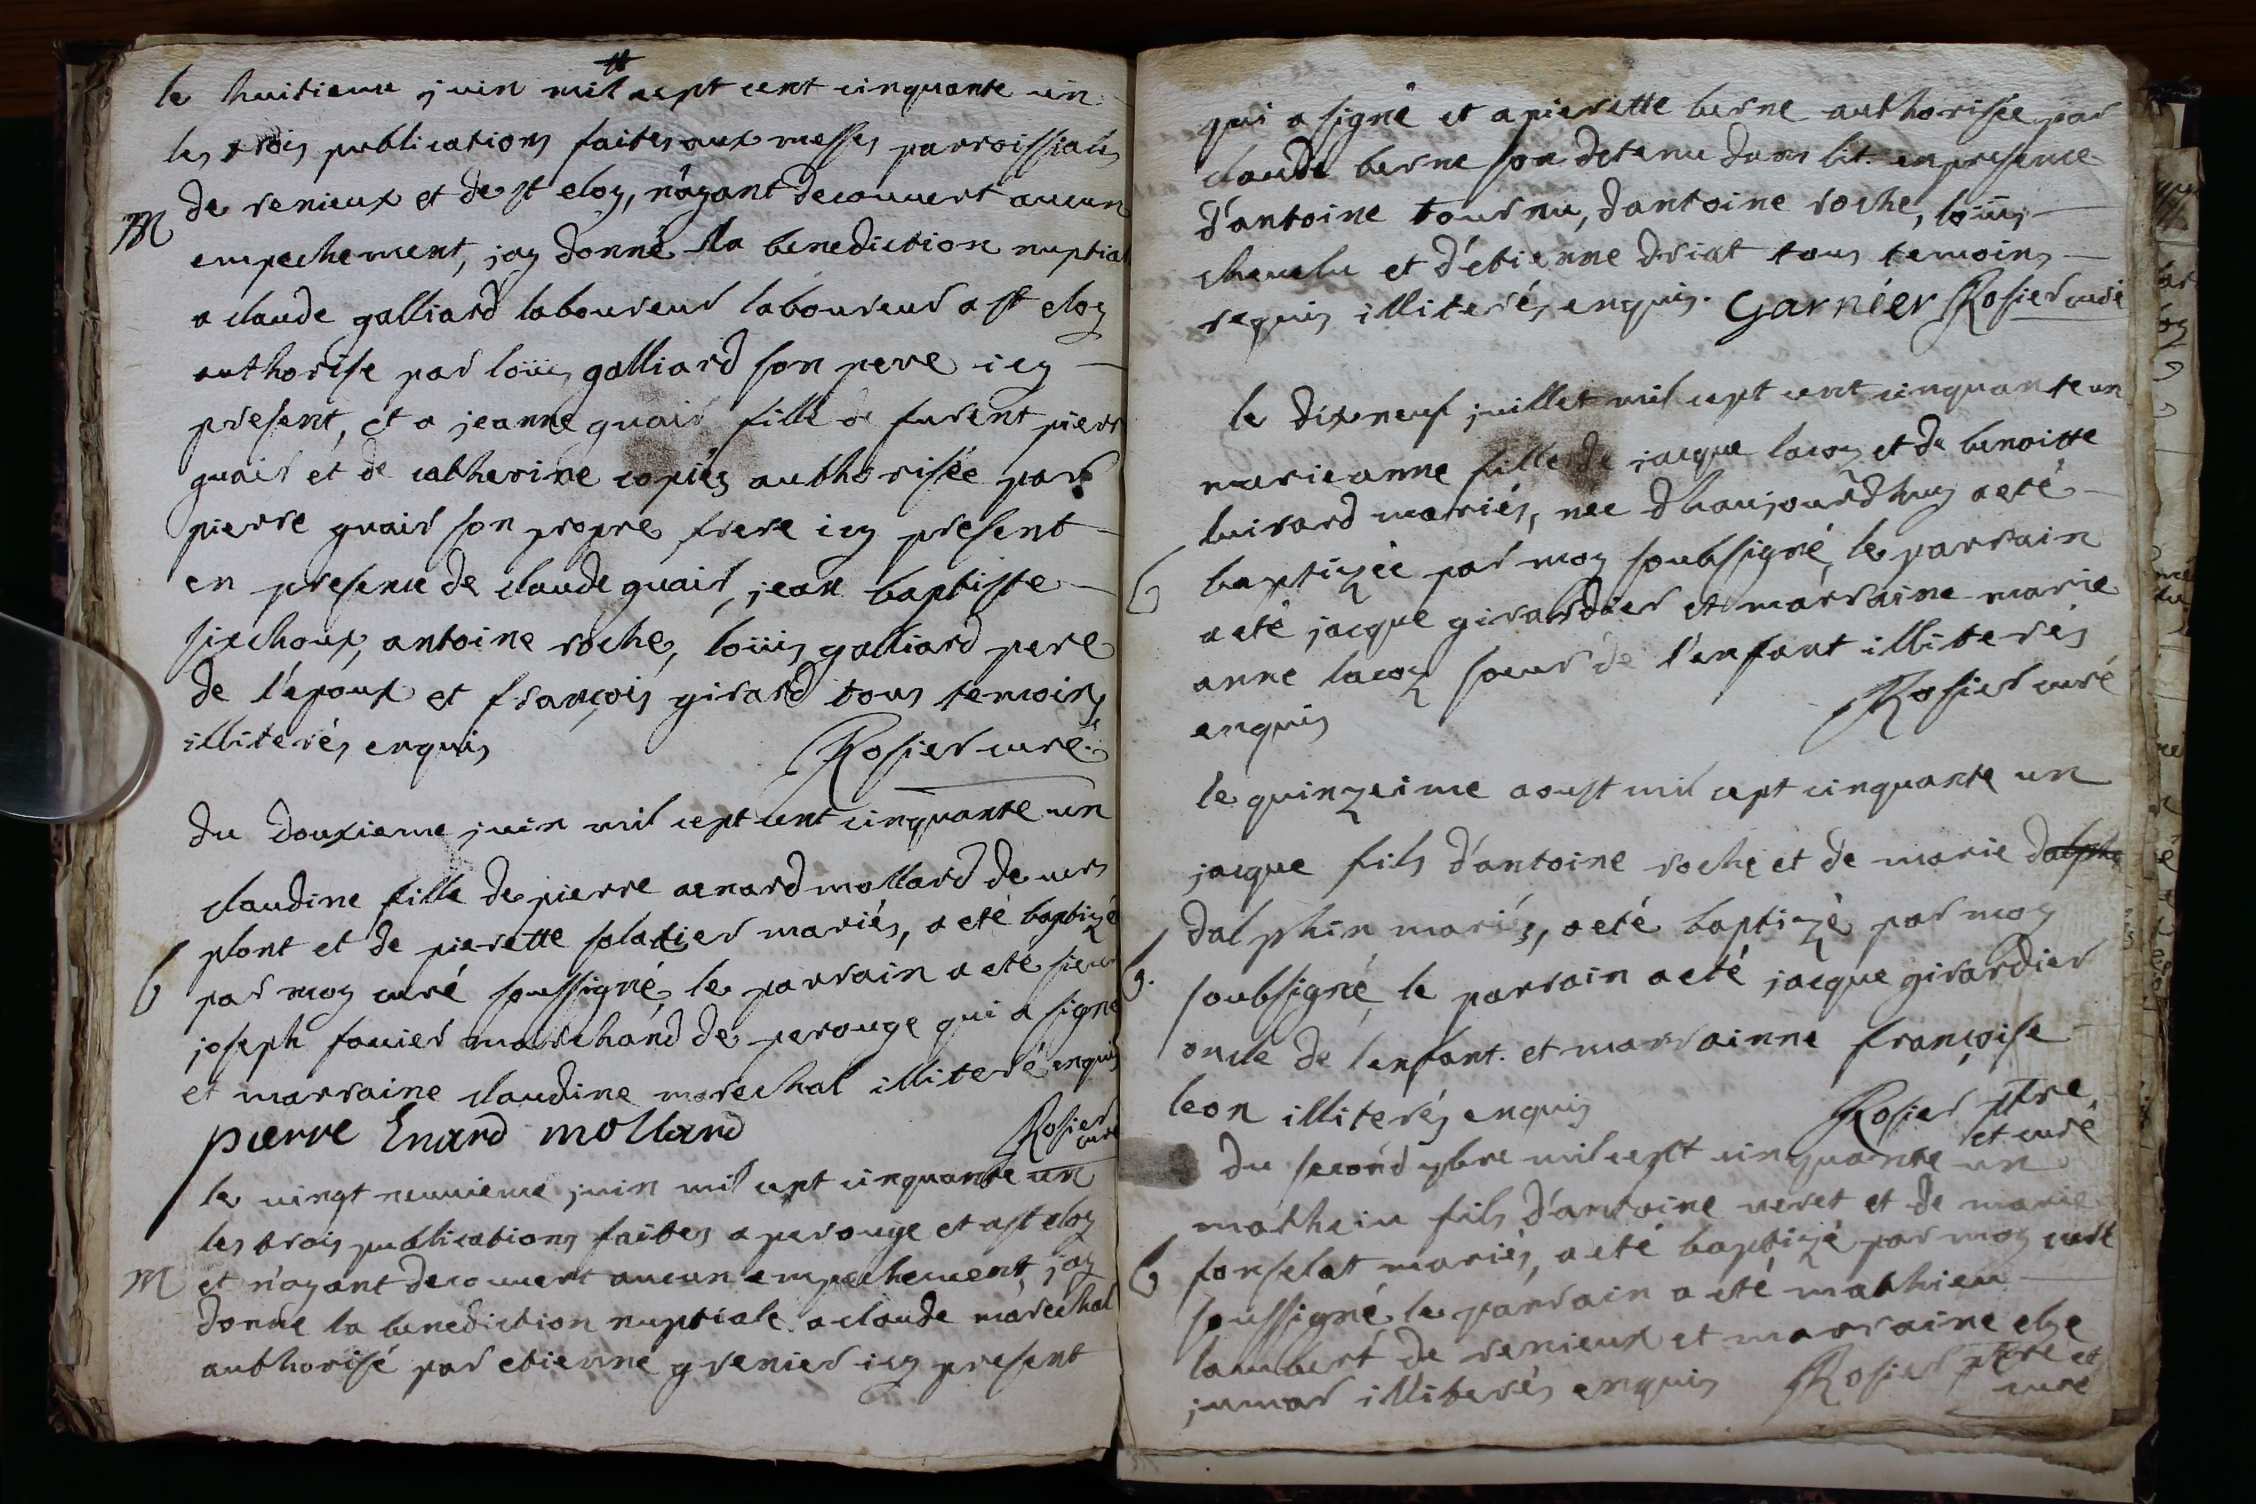 le huitieme juin mil sept cent cinquante un
les trois publications faites aux messes parroissiales
de renieux et de st eloy, n'ayant decouvert aucun
M
empechement, jay donné la benediction nuptial
a claude galliard laboureur laboureur a st eloy
authorise par loüis galliard son pere icy
present, et a jeanne guair fille de furent pierr
guair et de catherine copiez authorisée par
pierre guair son propre frere icy present
en presence de claude guair, jean baptiste
sixchoux, antoine roche, loüis galliard pere
de l'epoux et françois girard tous temoins
illiterés enquis Rosier curé
du douxieme juin mil cept cent cinquante un
claudine fille de pierre aenard mollard de vers
plont et de pierette solatier mariés, a eté baptizé
b
par moy curé soussigné, le parrain a eté sieur
joseph favier marchand de perouge qui a signé
et marraine claudine marechal illiteré enquis
pierre Enard mollard Rosier curé
le vingt neuvieme juin mil cept cinquante un
les trois publications faites a perouge et a st eloy
M et n'ayant decouvert aucun empechement, jay
donné la benediction nuptiale a claude marechal
authorisé par etienne grenier icy present
qui a signé et a pierette berne authorisée par
claude berne son detenu dans lit. en presence
d'antoine tournu, dantoine roche, loüis
chevelu et d'etienne driat tous temoins
requis illiterés enquis. Garnier Rosier curé
le dixneuf juillet mil cept cent cinquante un
marieanne fille de jacque lacoy et de benoitte
buirard mariés, nee dhaujourdhuy a eté
b baptizée par moy soubsigné, le parrain
a eté jacque girardier et marraine marie
anne lacoy soeur de l'enfant illiterés
enquis Rosier curé
le quinzeime aoust mil cept cinquante un
jacque fils d'antoine roche et de marie dalphe
dalphin mariés, a eté baptizé par moy
b.
soubsigné, le parrain a eté jacque girardier
oncle de lenfant. et marrainne françoise
leon illiterés enquis Rosier ptre et curé
du second 7bre mil cept cinquante un
mathein fils d'antoine veret et de marie
b fonselat mariés, a eté baptizé par moy curé
soussigné, le parrain a eté mathieu
lambert de renieux et marraine elze
jumar illiterés enquis Rosier ptre et curé